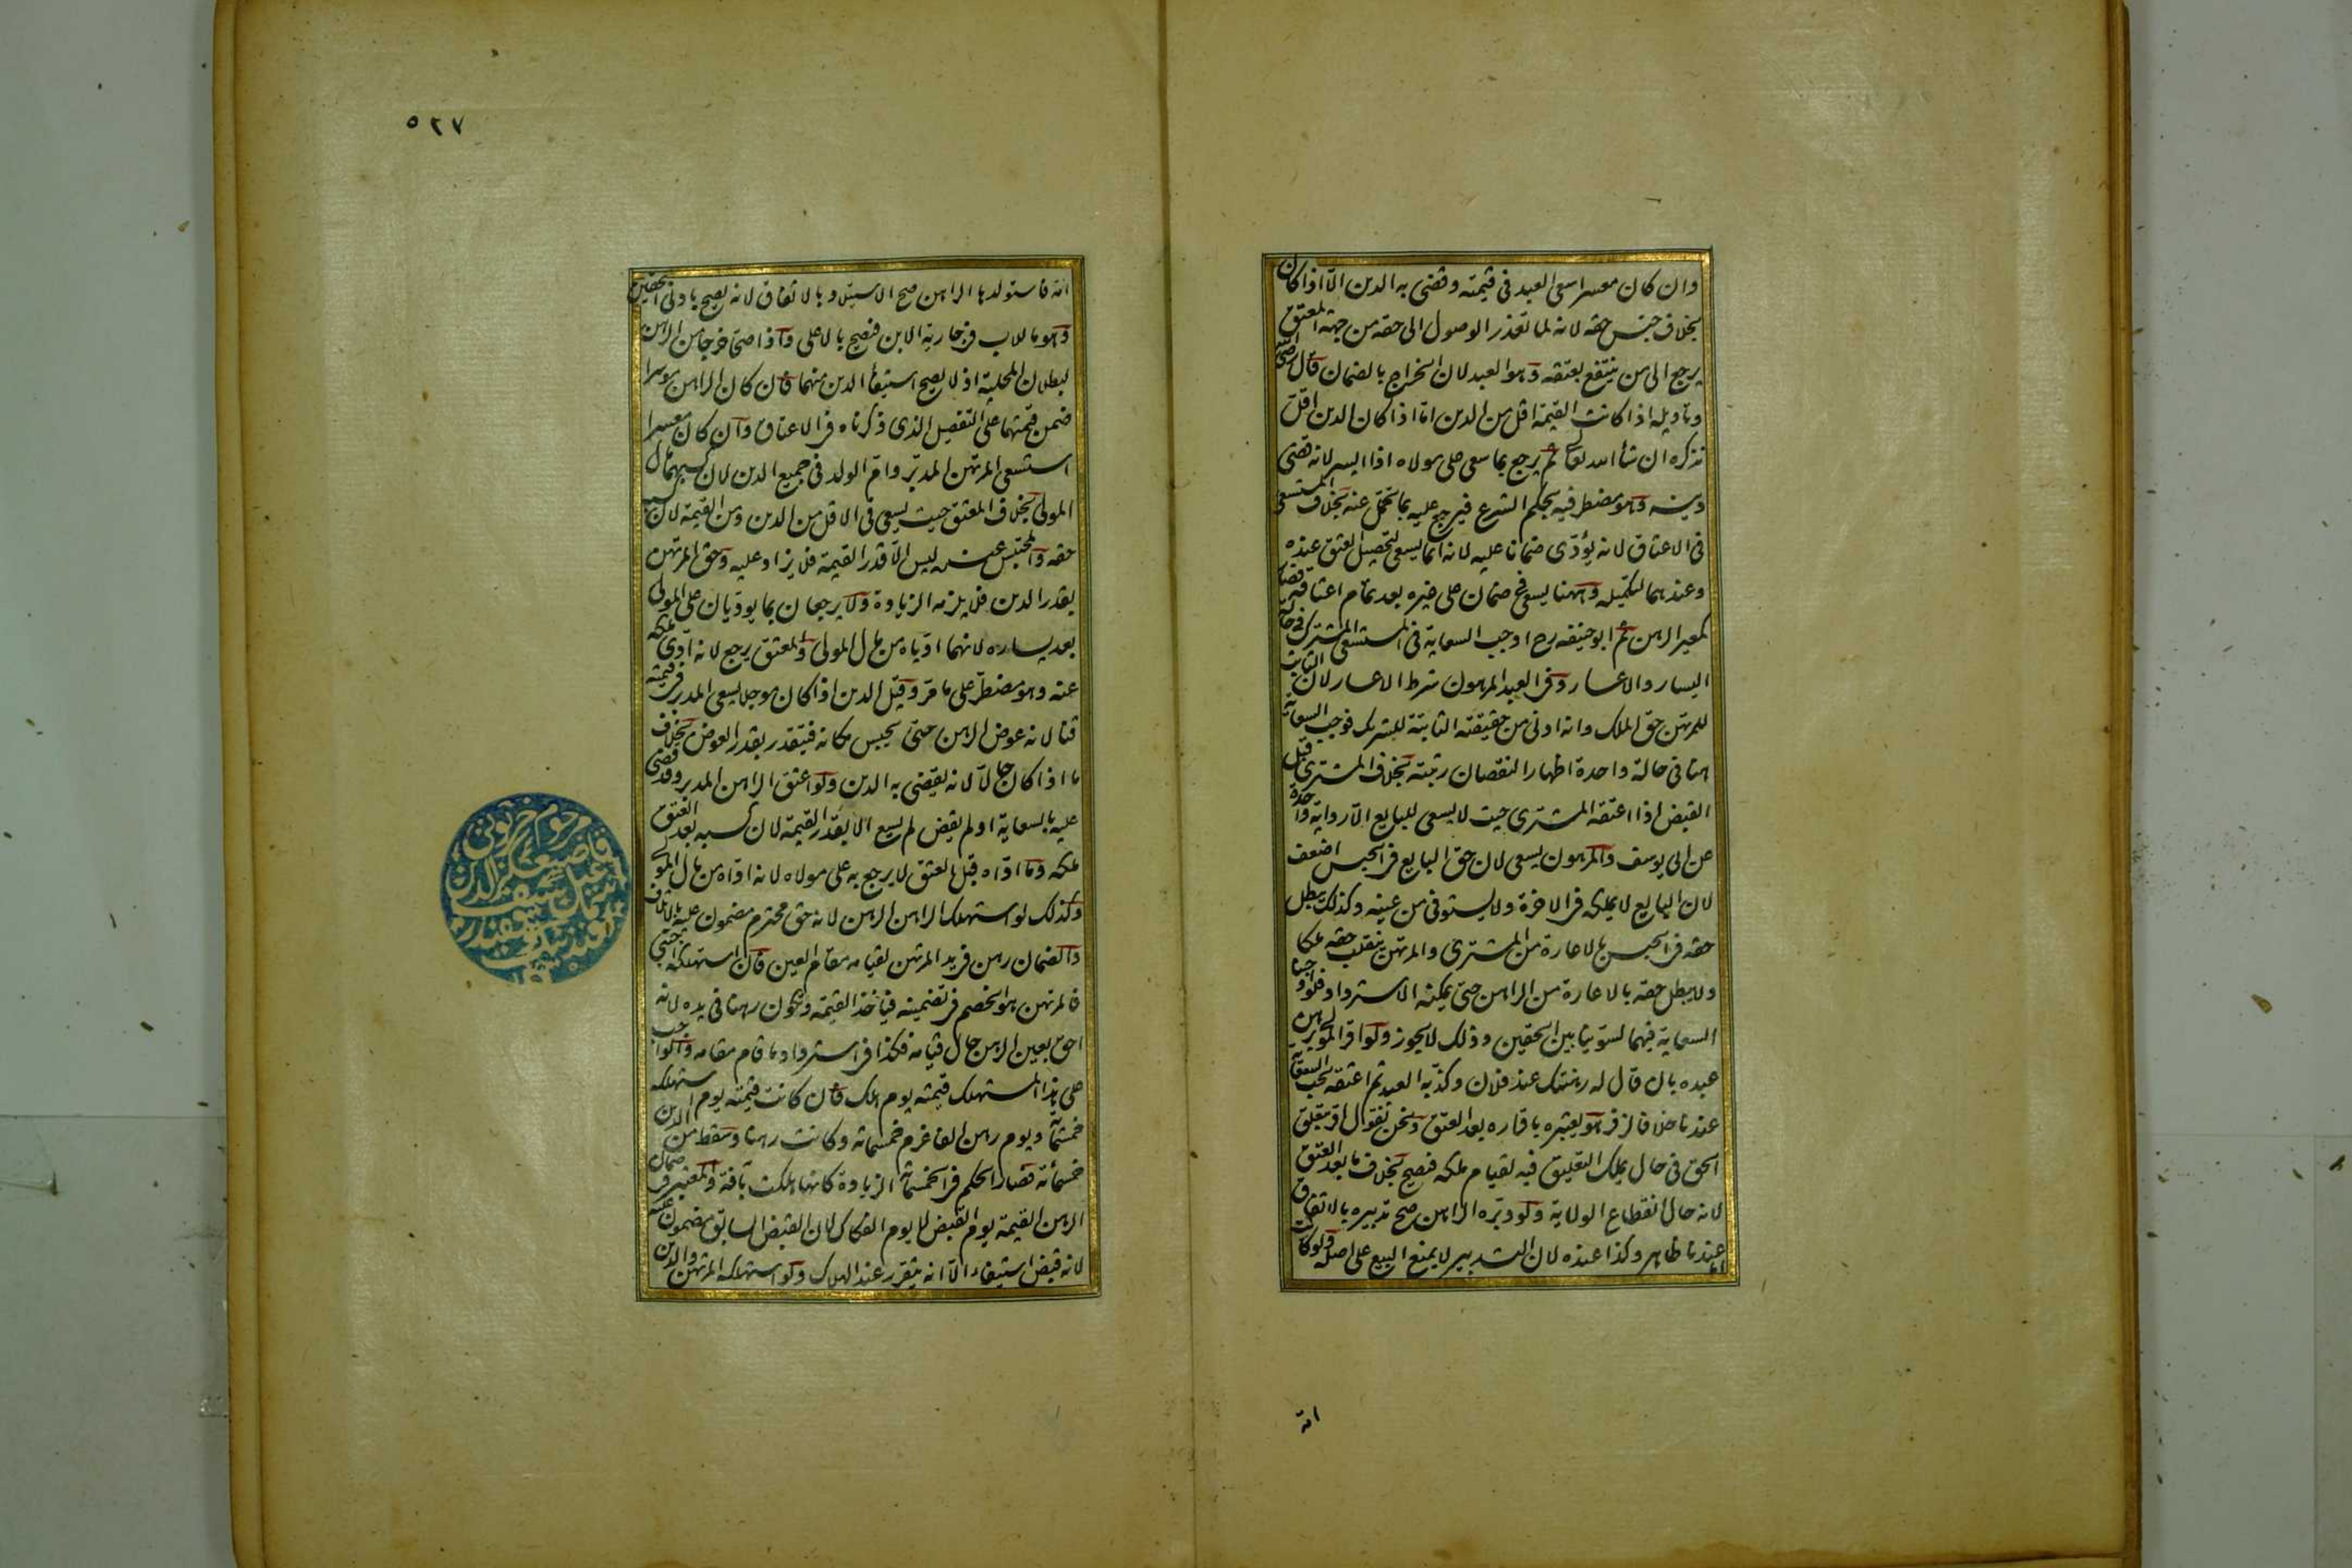 وان كان معسرا سعى العبد فى قيمته وقضى به الدين الّا اذا كان
بخلاف جنس حقه لانه لما تعذر الوصول الى حقه من جهة المعتق
يرجع الى من ينتفع بعتقه وهو العبد لان الخراج بالضمان قال رضى
وتأويله اذا كانت القيمة اقل من الدين امّا اذا كان الدين اقلّ
نذكره ان شاء الله تعالى ثم يرجع بما سعى على مولاه اذا ايسر لانه قضى
دينه وهو مضطر فيه بحكم الشرع فيرجع عليه بما تحمّل عنه بخلاف المستسعى
فى الاعتاق لانه يؤدّى ضمانا عليه لانه انما يسعى لتحصيل العتق عنده
وعندهما لتكميله وههنا يسعى فى ضمان على غيره بعد تمام اعتاقه فصار
كمعير الرهن ثم ابو حنيفه رح اوجب السعاية فى المستسعى المشترك فى حالة
اليسار والاعسار وفى العبد المرهون شرط الاعسار لان الثابت
للمرتهن حق الملك وانه ادنى من حقيقته الثابتة للشريك فوجب السعاية
هنا فى حالة واحدة اظهارا لنقصان رتبته بخلاف المشترى قبل
القبض اذا اعتقه المشترى حيث لا يسعى للبايع الّا رواية
عن ابى يوسف والمرهون يسعى لان حق البايع فى الحبس اضعف
لان البايع لا يملكه فى الاخرة ولا يستوفى من عينه وكذلك يبطل
حقه فى الحبس بالاعارة من المشترى والمرتهن ينقلب حقه ملكا
ولا يبطل حقه بالاعارة من الراهن حتى يمكنه الاسترداد فلو اوجبنا
السعاية فيهما لسوّينا بين الحقين وذلك لا يجوز ولو اقر المولى برهن
عبده بان قال له رهنتك عند فلان وكذّبه العبد ثم اعتقه تجب السعاية
عندنا خلافا لزفر هو يعتبره باقراره بعد العتق ونحن نقول اقر بتعلق
الحق فى حال يملك التعليق فيه لقيام ملكه فيصح بخلاف ما بعد العتق
لانه حال انقطاع الولاية ولو دبّره الراهن صح تدبيره بالاتفاق
عندنا ظاهر وكذا عنده لان التدبير لا يمنع البيع على اصله ولو كانت
امة
٥٢٧
امة فاستولدها الراهن صح الاستيلاد بالاتفاق لانه يصح بادنى الحقين
وهو ما للاب فى جارية الابن فيصح بالاعلى واذا صحّا خرجا من الرهن
لبطلان المحلية اذ لا يصح استيفاء الدين منهما فان كان الراهن موسرا
ضمن قيمتهما على التفصيل الذى ذكرناه فى الاعتاق وان كان معسرا
استسعى المرتهن المدبّر وامّ الولد فى جميع الدين لان كسبهما مال
المولى بخلاف المعتق حيث يسعى فى الاقل من الدين ومن القيمة لان كسبه
حقه والمحتبس عنده ليس الّا قدر القيمة فلا يزاد عليه وحق المرتهن
بقدر الدين فلا يلزمه الزيادة ولا يرجعان بما يؤديان على المولى
بعد يساره لانهما ادّياه من مال المولى والمعتق يرجع لانه ادّى ملكه
عنه وهو مضطرّ على ما مرّ وقيل الدين اذا كان مؤجلا يسعى المدبر فى قيمته
قنا لانه عوض الرهن حتى يحبس مكانه فيتقدر بقدر العوض بخلاف
ما اذا كان حالّا لانه يقضى به الدين ولو اعتق الراهن المدبر وقد قضى
عليه بالسعاية او لم يقض لم يسع الا بقدر القيمة لان كسبه بعد العتق
ملكه وما ادّاه قبل العتق لا يرجع به على مولاه لانه ادّاه من مال المولى
وكذلك لو استهلك الراهن الرهن لانه حق محترم مضمون عليه بالاتلاف
والضمان رهن فى يد المرتهن لقيامه مقام العين فان استهلكه اجنبى
فالمرتهن هو الخصم فى تضمينه فيأخذ القيمة وتكون رهنا فى يده لانه
احق بعين الرهن حال قيامه فكذا فى استرداد ما قام مقامه والواجب
على هذا المستهلك قيمته يوم هلك فان كانت قيمته يوم استهلكه
خمسمائة ويوم رهن الفا غرم خمسمائة وكانت رهنا وسقط من الدين
خمسمائة فصار الحكم فى الخمسمائة الزيادة كانها هلكت بآفة والمعتبر فى ضمان
الرهن القيمة يوم القبض لا يوم الفكاك لان القبض السابق مضمون عليه
لانه قبض استيفاء الّا انه يتقرر عند الهلاك ولو استهلكه المرتهن والدين